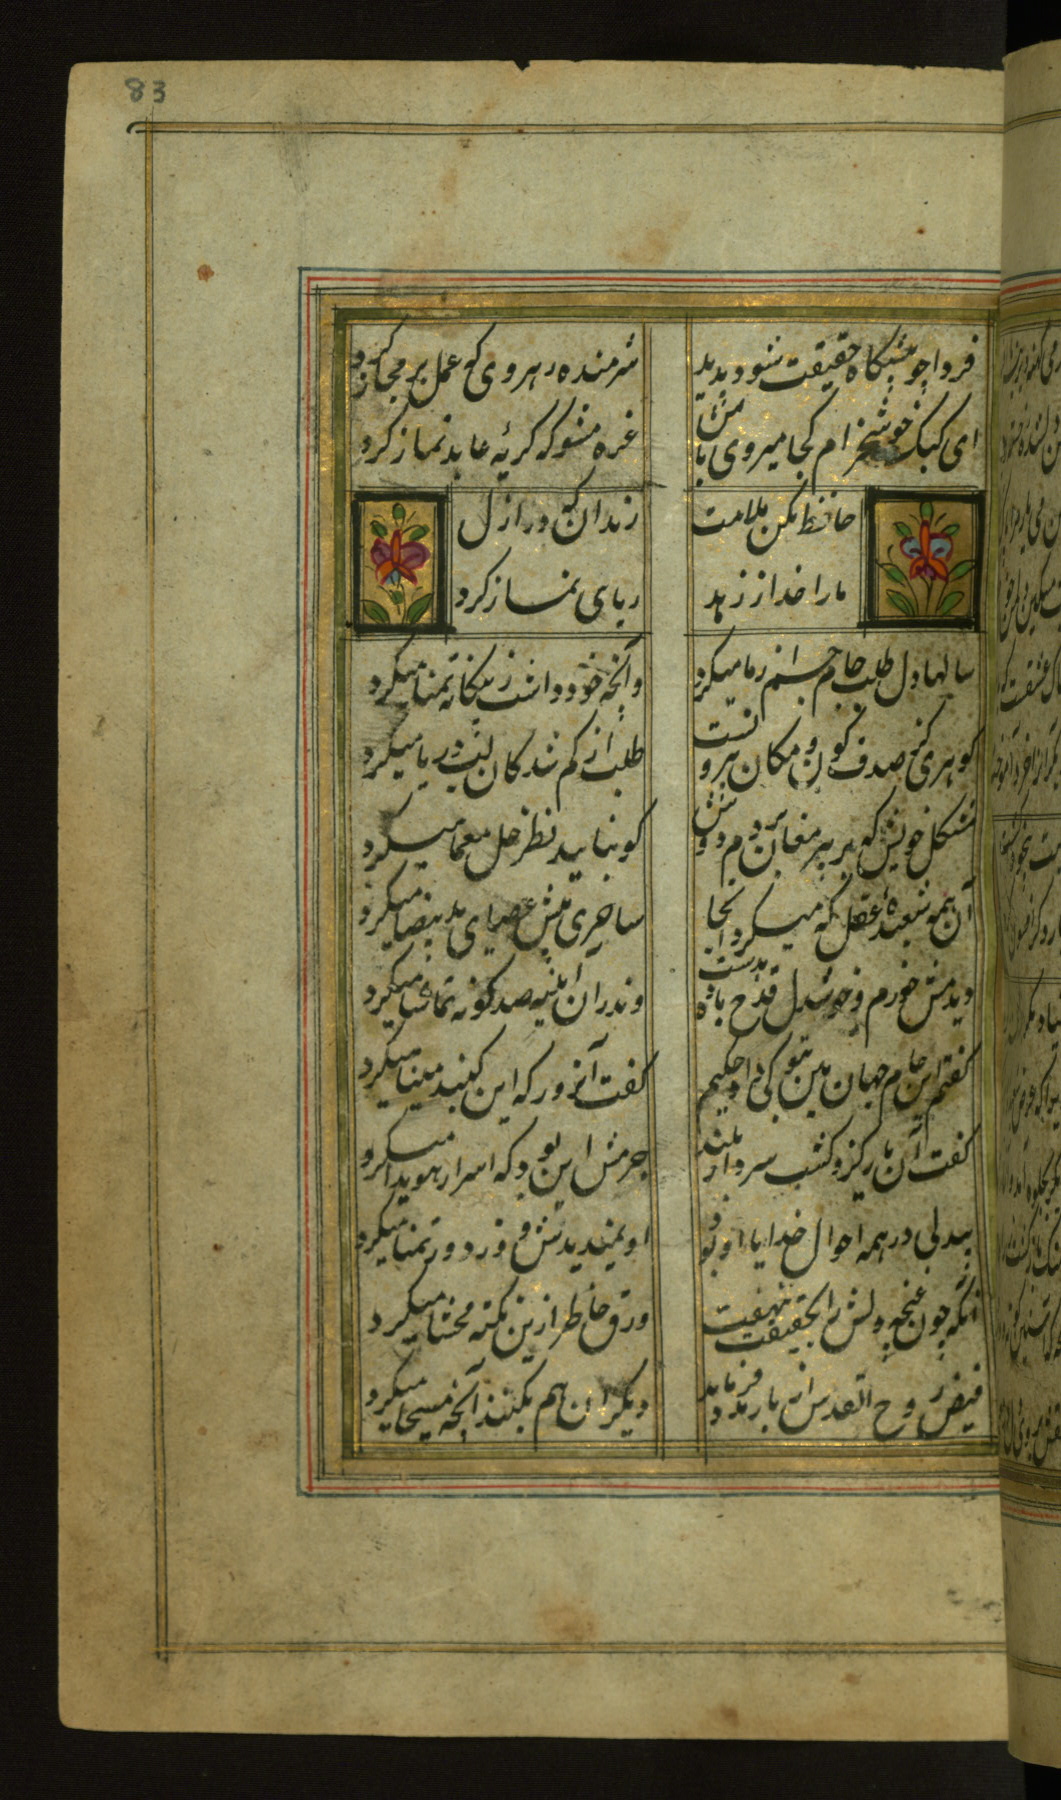 83
فردا چو پیشگاه حقیقت شود پدید شرمنده رهروی که عمل بر مجاز کرد
ای کبک خوشخرام کجا میروی بایست غره مشو که گربهٔ عابد نماز کرد
حافظ مکن ملامت رندان که در ازل
ما را خدا از زهد ریای نماز کرد
سالها دل طلب جام جم از ما میکرد وآنچه خود داشت ز بیگانه تمنا میکرد
گوهری کز صدف کون و مکان بیرونست طلب از گم شدگان لب دریا میکرد
مشکل خویش بر پیر مغان بردم دوش کو بتایید نظر حل معما میکرد
آن همه شعبدهٔ عقل که میکرد آنجا ساحری پیش عصای ید بیضا میکرد
دیدمش خورم و خوشدل قدح باده بدست وندران آینه صد گونه تماشا میکرد
گفتم این جام جهان بین بتو کی داد حکیم گفت آنروز که این گنبد مینا میکرد
گفت آن یار کزو گشت سر دار بلند جرمش این بود که اسرار هویدا میکرد
بیدلی در همه احوال خدا با او بود او نمیدیدش و از دور تمنا میکرد
آنکه چون غنچه دلش راز حقیقت بنهفت ورق خاطر ازین نکته محشا میکرد
فیض روح القدس ار باز مدد فرماید دیگران هم بکنند آنچه مسیحا میکرد